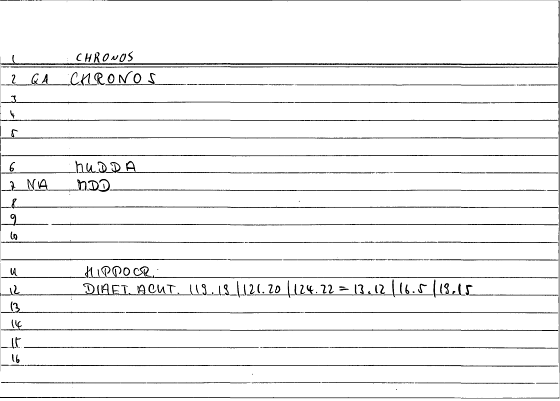 1 CHRONOS
2 GA CHRONOS
3
4
5
6 MUDDA
7 NA MDD
8
9
10
11 HIPPOCR.
12 DIAET. ACUT. 119.19 | 121.20 | 124.22 = 13.12 | 16.5 | 19.15
13
14
15
16